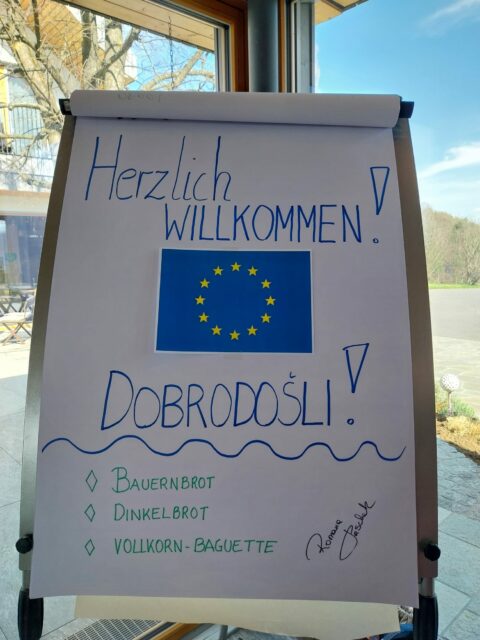 Herzlich
WILLKOMMEN!
DOBRODOŠLI!
◊ BAUERNBROT
◊ DINKELBROT
◊ VOLLKORN-BAGUETTE
Romana